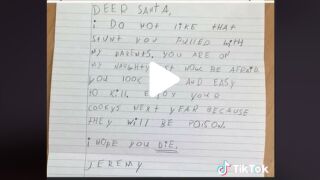 DEER SANTA,
i DO NOT LIKE THAT
STUNT YOU PULLED WITH
MY PARENTS. YOU ARE ON
MY NAUGHTY NOW. BE AFRAID.
YOU LOOK AND EASY
TO KILL. ENJOY YOUR
COOKYS NEXT YEAR BECAUSE
THEY WILL BE POISON.
i HOPE YOU DIE.
JEREMY
TikTok